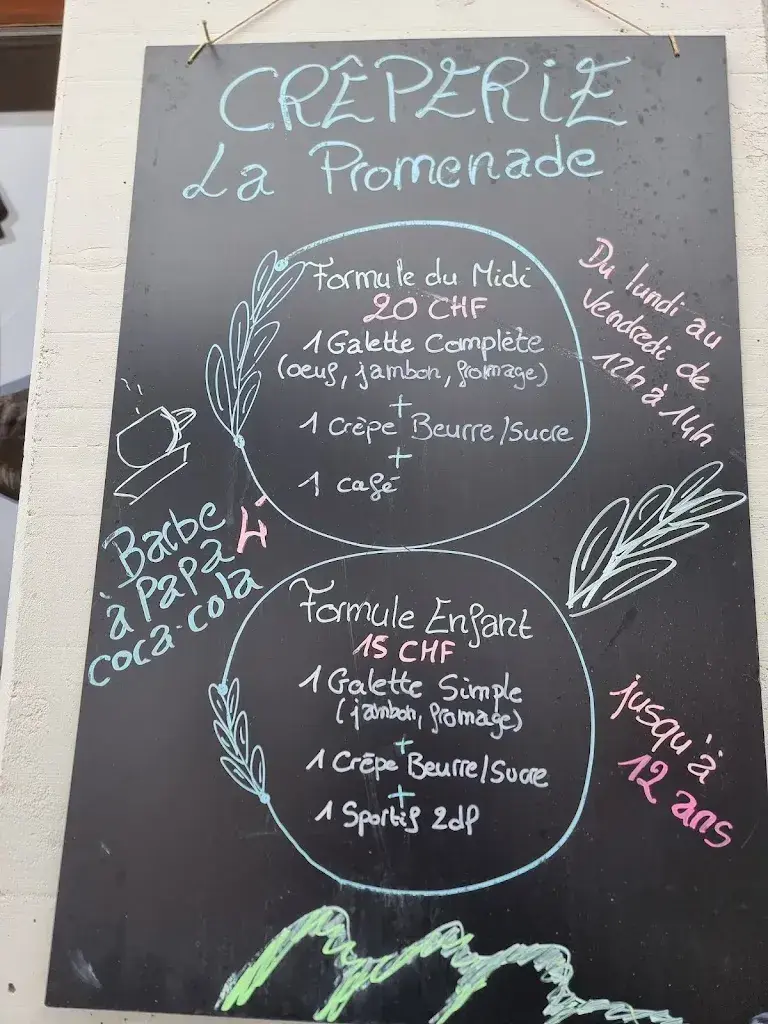 CRÊPERIE
La Promenade
Formule du Midi
20 CHF
1 Galette Complète
(oeuf, jambon, fromage)
+
1 Crèpe Beurre/Sucre
+
1 café
Du lundi au
vendredi de
12h à 14h
Barbe 4
à papa
coca-cola
Formule Enfant
15 CHF
1 Galette Simple
(jambon, fromage)
+
1 Crêpe Beurre/Sucre
+
1 Sportif 2dl
jusqu'à
12 ans